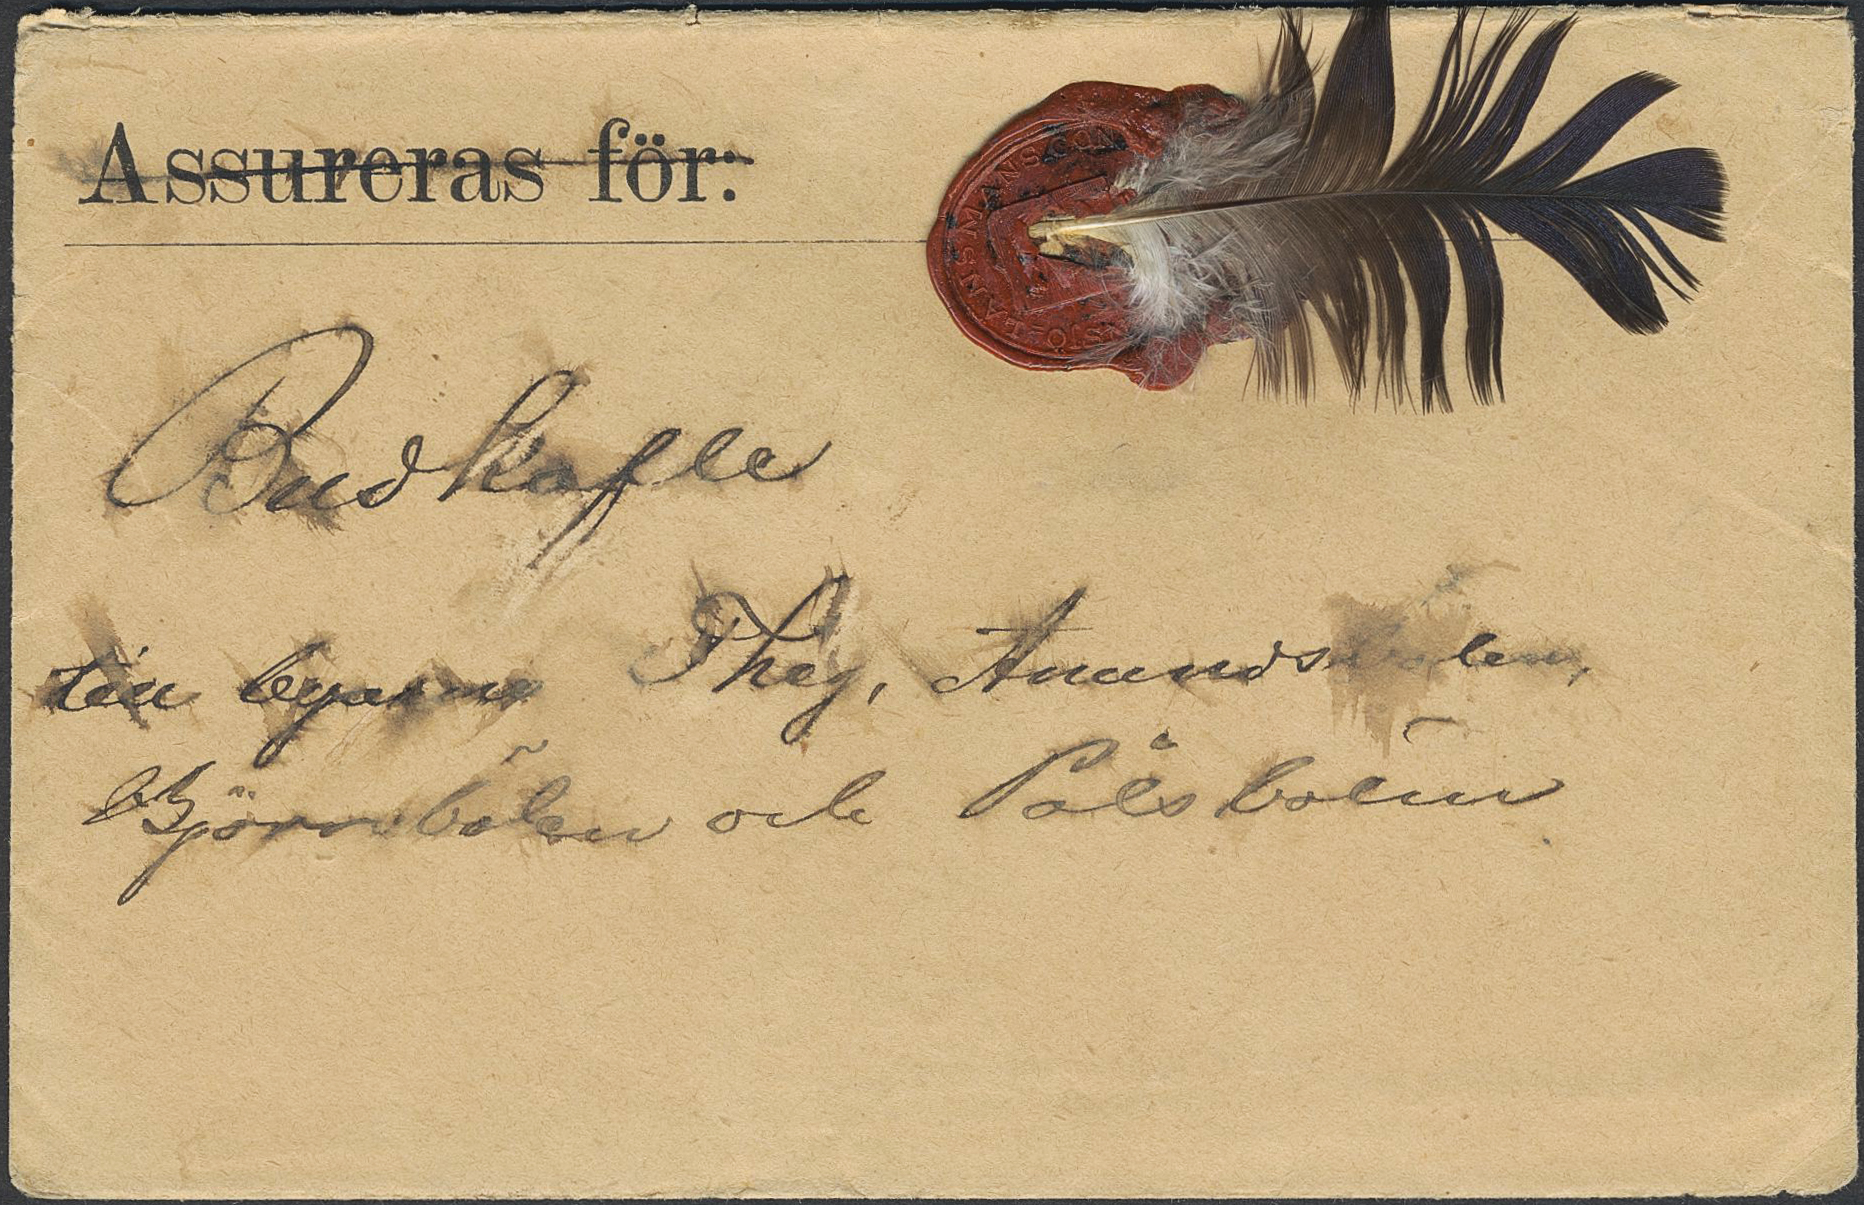 Assureras för:
LÄNSMANSCON
Budkafle
till byarne Theg, Anundsbölen,
Björnsbölen och Pålsbölen